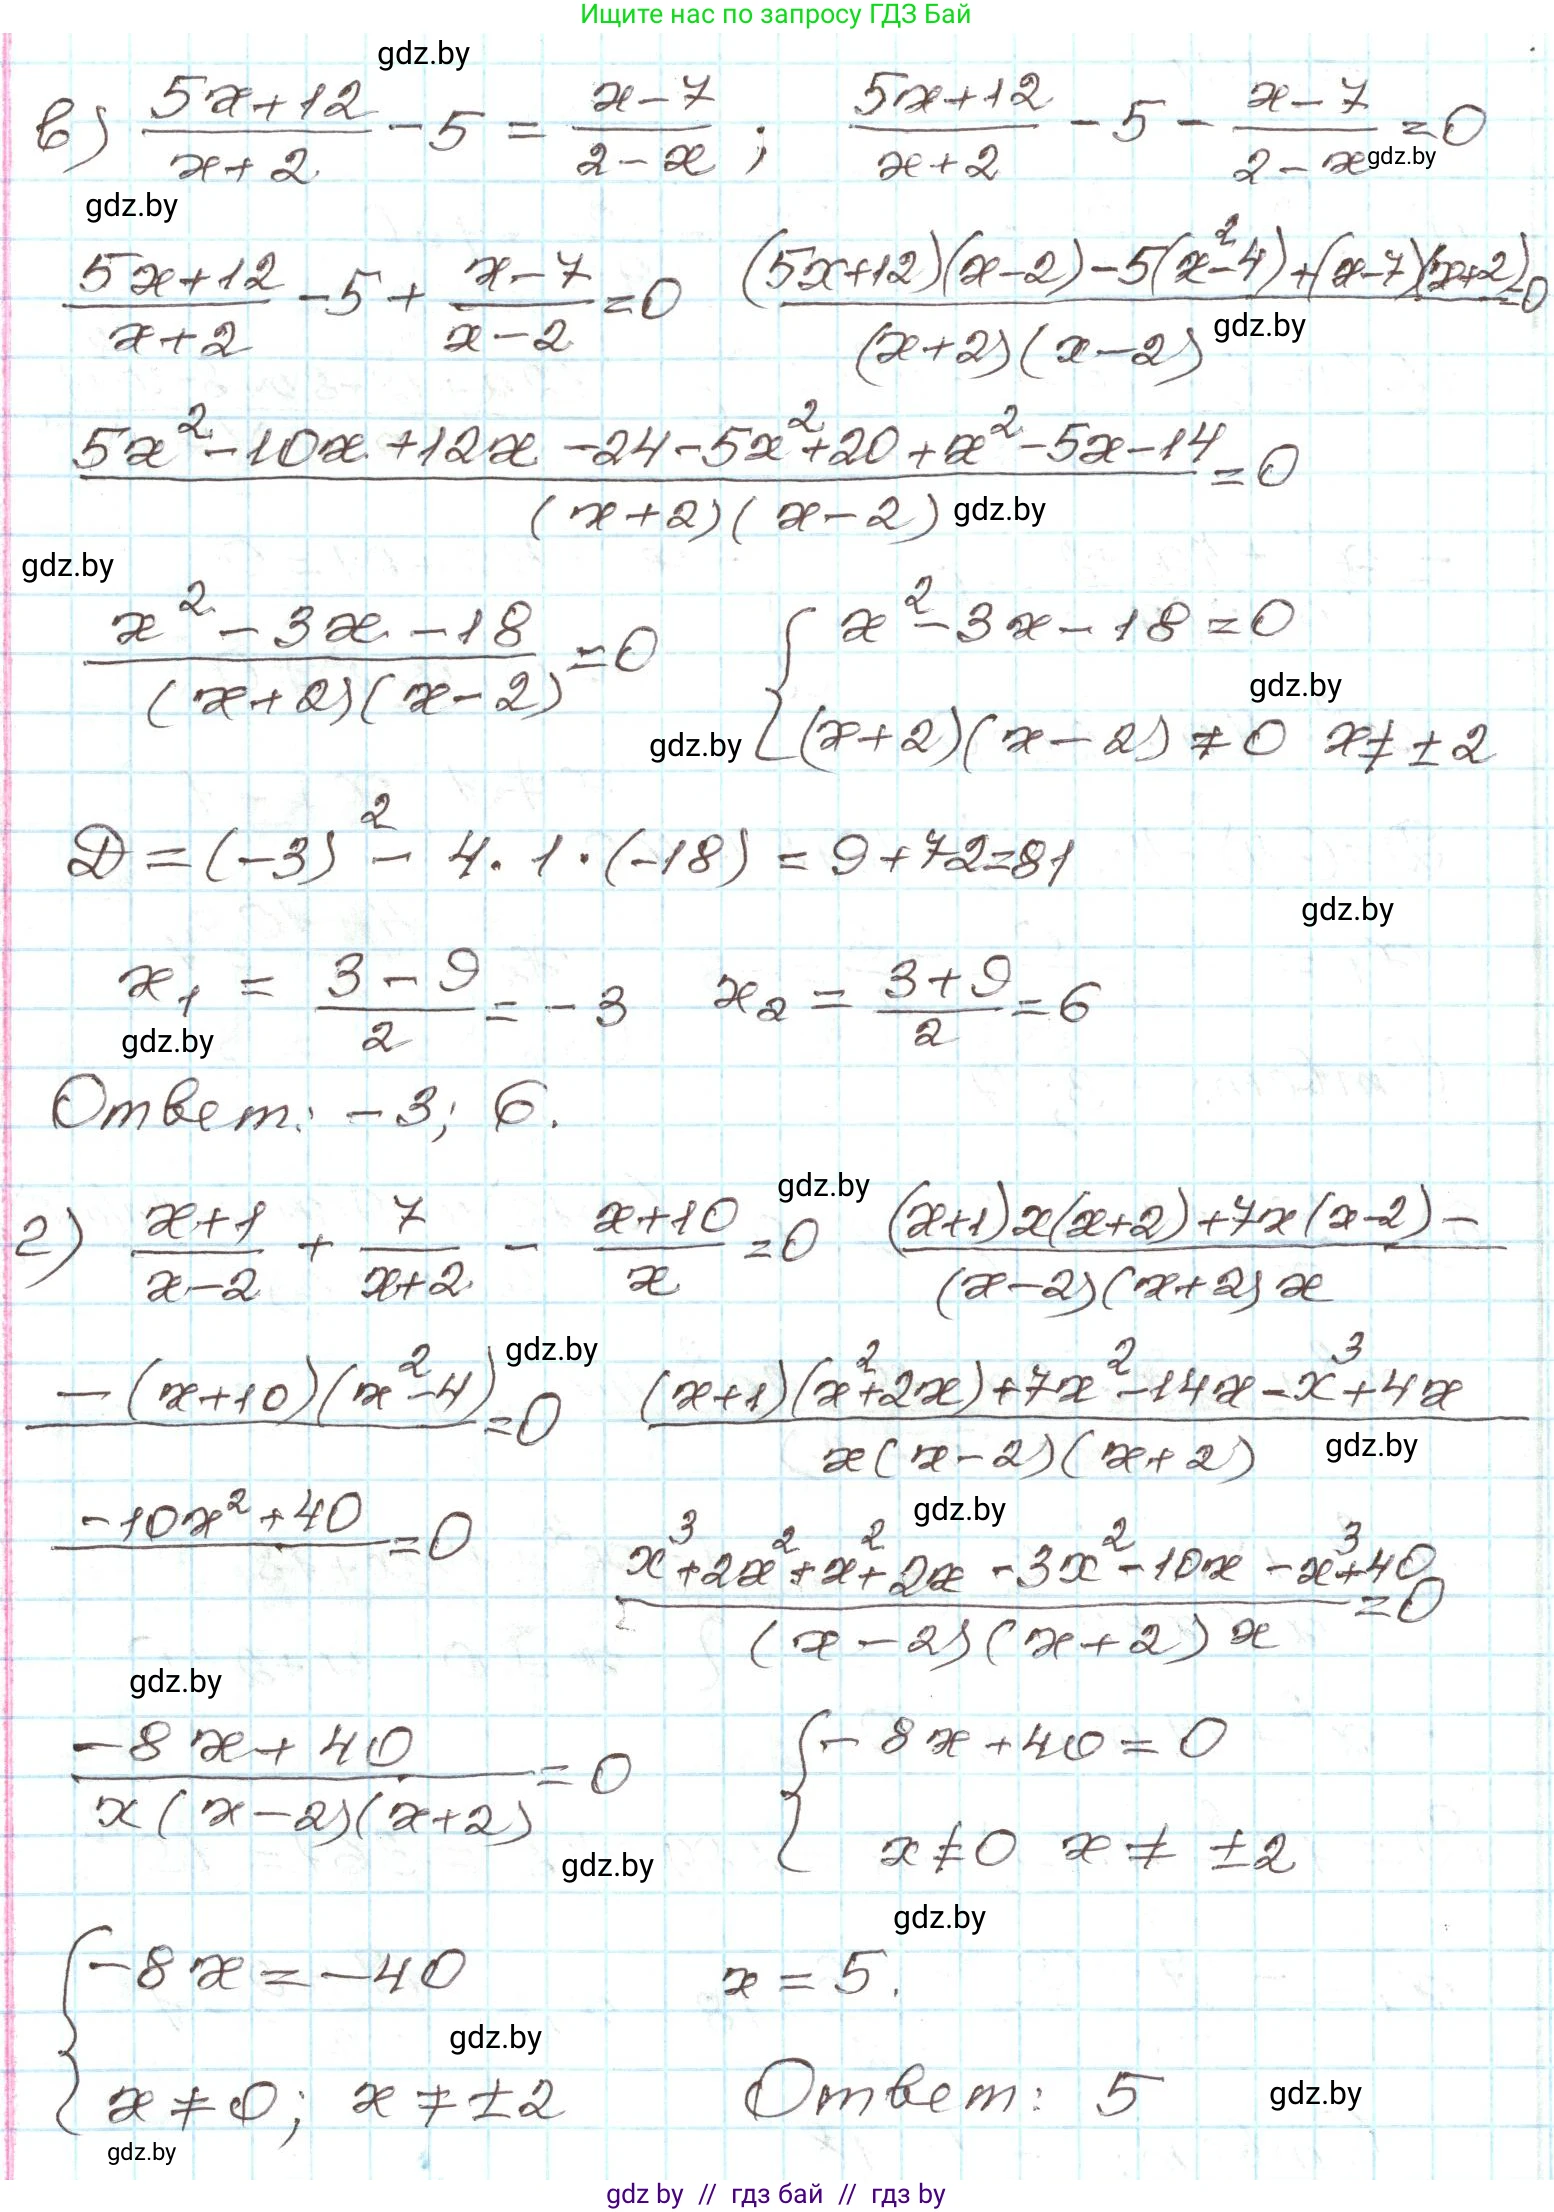 Ищите нас по запросу ГДЗ Бай
gdz.by
в) (5x+12)/(x+2) - 5 = (x-7)/(2-x); (5x+12)/(x+2) - 5 - (x-7)/(2-x) = 0
gdz.by
gdz.by
(5x+12)/(x+2) - 5 + (x-7)/(x-2) = 0 ((5x+12)(x-2) - 5(x²-4) + (x-7)(x+2))/((x+2)(x-2)) = 0
gdz.by
(5x² - 10x + 12x - 24 - 5x² + 20 + x² - 5x - 14)/((x+2)(x-2)) = 0
gdz.by
gdz.by
(x² - 3x - 18)/((x+2)(x-2)) = 0 { x² - 3x - 18 = 0
gdz.by
gdz.by
(x+2)(x-2) ≠ 0 x ≠ ±2
D = (-3)² - 4·1·(-18) = 9+72=81
gdz.by
x₁ = (3-9)/2 = -3 x₂ = (3+9)/2 = 6
gdz.by
Ответ: -3; 6.
gdz.by
г) (x+1)/(x-2) + 7/(x+2) - (x+10)/x = 0 ((x+1)x(x+2) + 7x(x-2) -)/((x-2)(x+2)x)
gdz.by
-(x+10)(x²-4) = 0 ((x+1)(x²+2x) + 7x² - 14x - x³ + 4x)/(x(x-2)(x+2))
gdz.by
gdz.by
-10x² + 40 = 0 (x³ + 2x² + x² + 2x - 3x² - 10x - x³ + 40)/((x-2)(x+2)x) = 0
gdz.by
(-8x + 40)/(x(x-2)(x+2)) = 0 { -8x + 40 = 0
x ≠ 0 x ≠ ±2
gdz.by
gdz.by
{ -8x = -40 x = 5.
gdz.by
x ≠ 0; x ≠ ±2 Ответ: 5
gdz.by
gdz.by
gdz by // гдз бай // гдз by